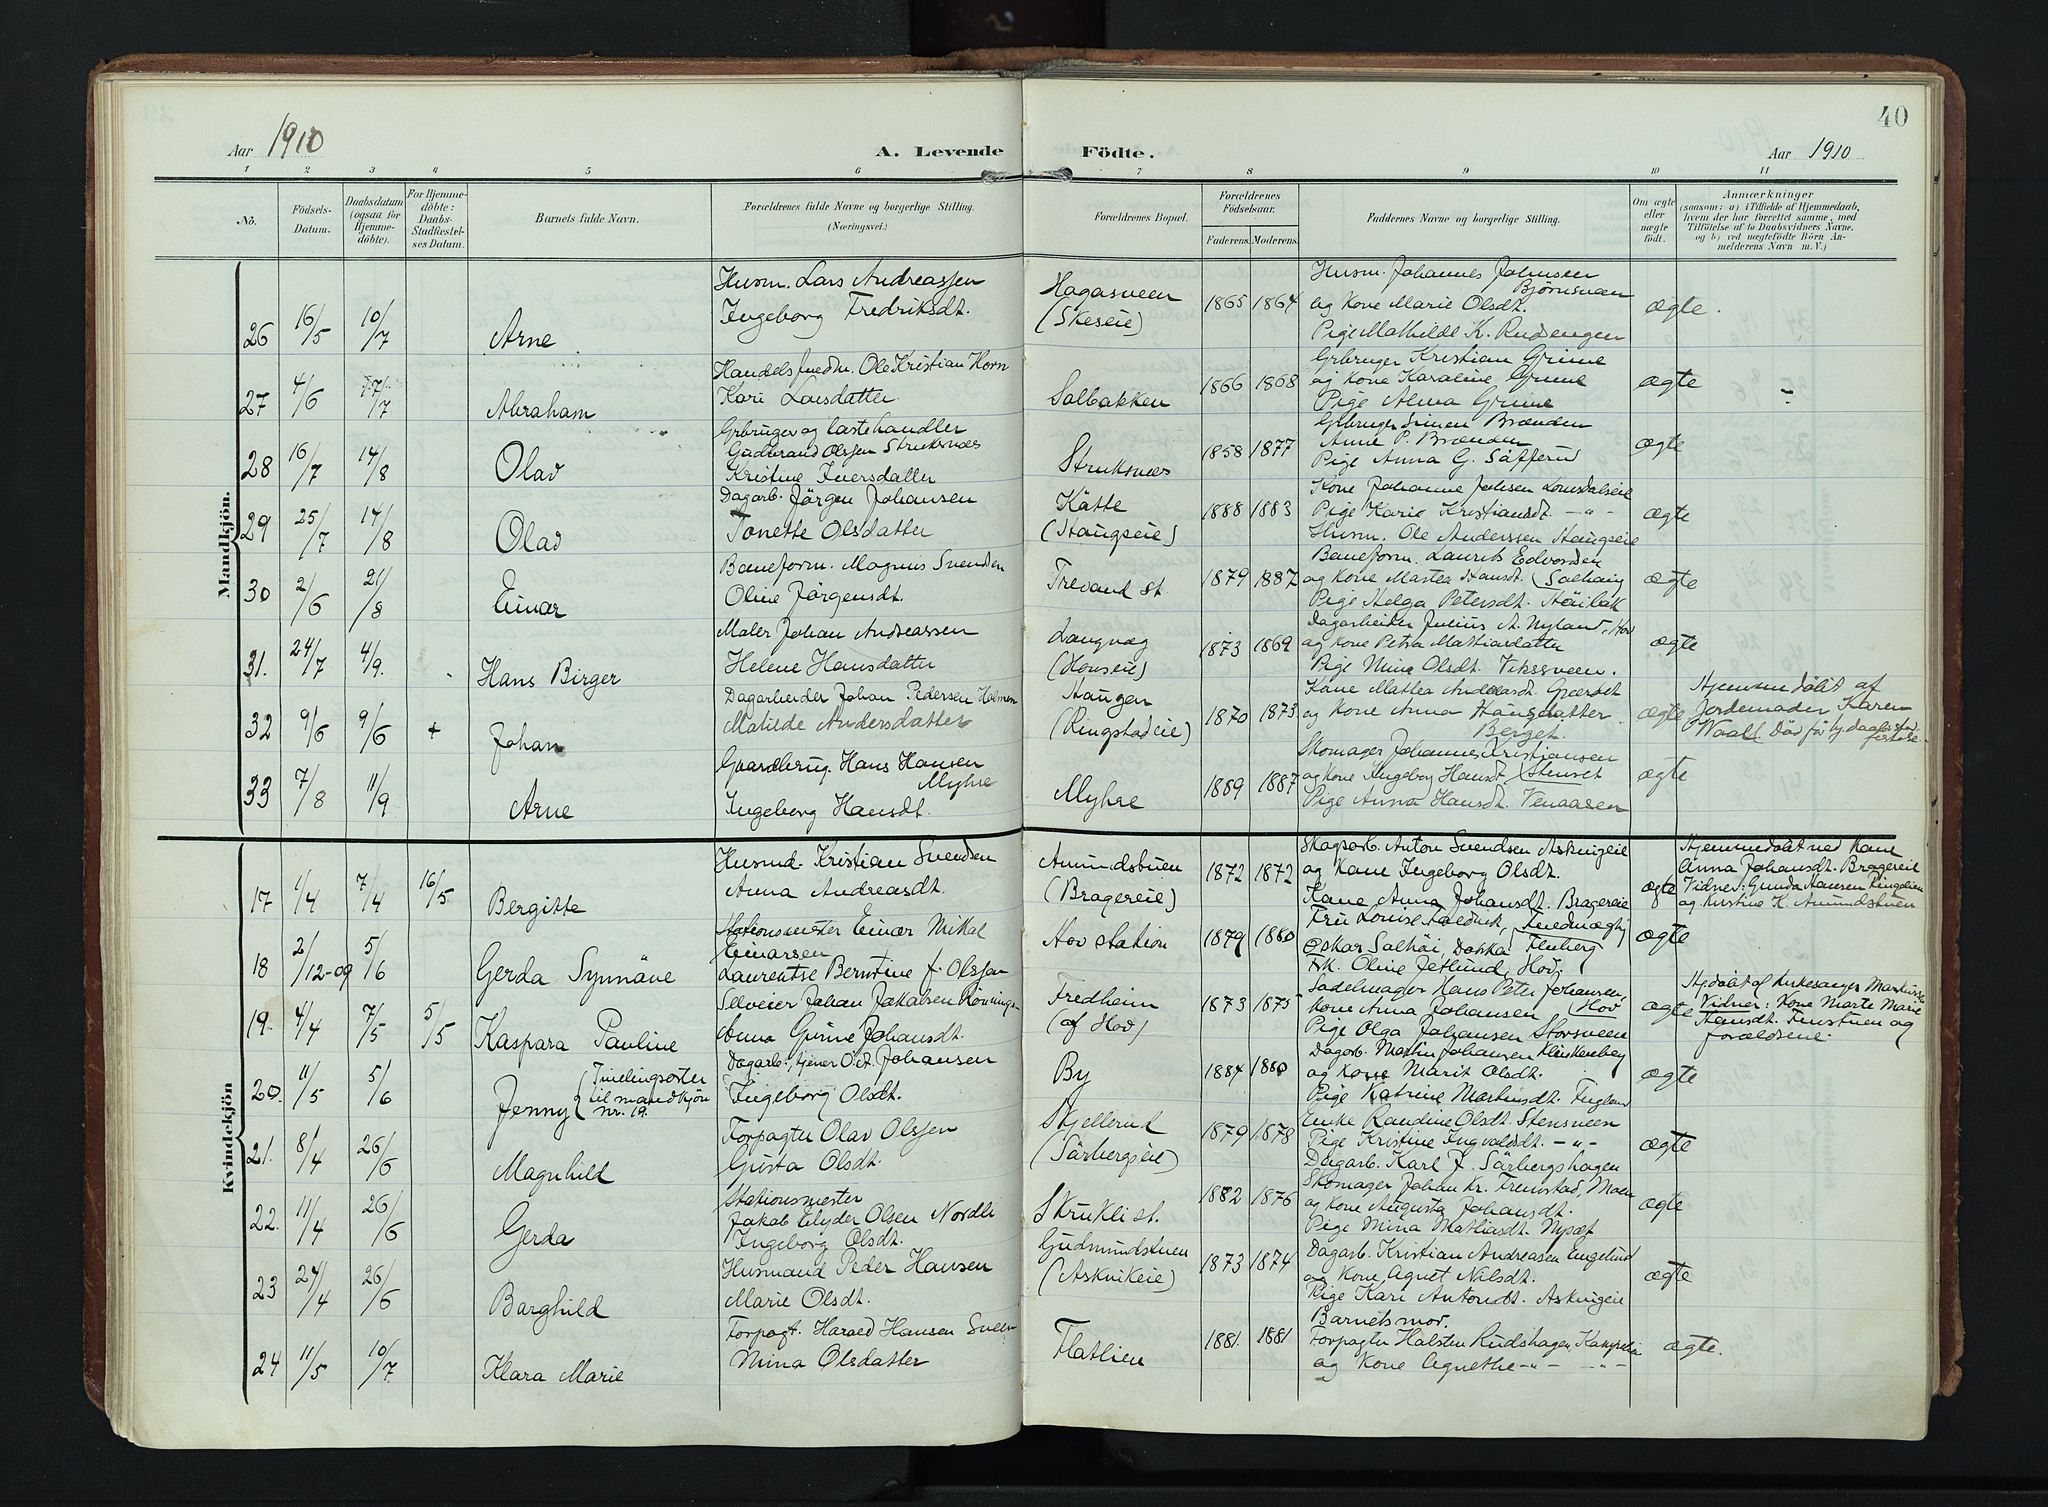 40
Aar 1910
A. Levende Födte.
Aar 1910
1 2 3 4 5 6 7 8 9 10 11
No.
Födsels-Datum.
Daabsdatum (ogsaa for Hjemme-döbte).
For Hjemme-döbte: Daabs-Stadfæstel-ses Datum.
Barnets fulde Navn.
Forældrenes fulde Navne og borgerlige Stilling. (Næringsvei.)
Forældrenes Bopæl.
Forældrenes Födselsaar.
Faderens. Moderens.
Faddernes Navne og borgerlige Stilling.
Om ægte eller uægte födt.
Anmærkninger
(saasom: a) i Tilfælde af Hjemmedaab, hvem der har forrettet samme, med Tilföielse af to Daabsvidners Navne. og b) ved uægtefödte Börn An-melderens Navn m. V.)
Mandkjön.
26 16/5 10/7 Arne
Husm. Lars Andreassen
Ingeborg Fredriksdt.
Hagasveen
(Skeseie)
1865 1864
Husm. Johannes Johnsen
Björnsveen
og Kone Marie Olsdt.
Pige Mathilde K. Rudsengen
ægte.
27 4/6 17/7 Abraham
Handelsfuldm. Ole Kristian Horn
Kari Larsdatter
Solbakken
1866 1868
Grbruger Kristian Grime
og Kone Karoline Grime
Pige Alma Grime
ægte
28 16/7 14/8 Olav
Grbruger og lastehandler
Gudbrand Olsen Struksnæs
Kristine Iversdatter
Struksnæs
1858 1877
Grbruger Simen Brænden
Anne P. Brænden
Pige Anna G. Säfferud
ægte
29 25/7 14/8 Olav
Dagarb. Jörgen Johansen
Tonette Olsdatter
Kätte
(Haugseie)
1888 1883
Kone Johanne Johsen Lomsdalseie
Pige Karie Kristiansdt. -"-
Husm. Ole Anderssen Haugseie
ægte
30 2/6 21/8 Einar
Baneform. Magnus Svendsen
Oline Jörgensdt.
Trevand st
1879 1887
Baneform. Laurits Edvardsen
og Kone Martea Hansdt. Solhaug
Pige Helga Petersdt. Häibak
ægte
31. 24/7 4/9. Hans Birger
Maler Johan Andreassen
Helene Hansdatter
Langvæg
(Honseie)
1873 1869
Dagarbeider Julius A. Nyland, Hov
og Kone Petra Mathiasdatter
Pige Nina Olsdt. Vikssveen.
ægte
32 9/6 9/6 + Johan
Dagarbeider Johan Pedersen Holmen
Matilde Andersdatter
Haugen
(Ringstadeie)
1870 1873
Kone Mathea Andersdt.
og Kone Anna Hansdatter
Berget.
ægte
Hjemmedöbt af
Jordemoder Karen
Waall Död för
33 7/8 11/9 Arne
Gaardbrug. Hans Hansen
Myhre
Ingeborg Hansdt.
Myhre
1889 1887
Skomager Johannes Kristiansen
og Kone Ingeborg Hansdt. Stenset
Pige Anna Hansdt. Venaasen
ægte
Kvindekjön
17 1/4 7/4 16/5 Bergitte
Husmd. Kristian Svendsen
Anna Andreasdt.
Amundsbuen
(Bragereie)
1872 1872
Skogsarb. Anton Svendsen Askvigeie
og Kone Ingeborg Olsdt.
Kone Anna Johansdt. Bragereie
ægte
Hjemmedöbt ved Kone
Anna Johansdt. Bragereie
Vidner: Gunda Hansen Ringelien
og Kristine K. Amundstuen
18 2/12-09 5/6 Gerda Synnäve
Stationsmester Einar Mikal
Einarsen
Laurentse Berntine f. Olsen
Hov station
1879 1880
Fru Louise
Oskar Solhöi, Dokka
Frk. Oline Jetlund, Hov.
ægte
19. 4/4 7/5 5/5 Kaspara Pauline
Johan Jakobsen
Anna Gurine Johansdt.
Fredheim
(af Hov)
1873 1875
Sadelmager Hans Peter Johansen,
Kone Anna Johansen Hov
Pige Olga Johansen Storsveen
ægte
Hj.döbt af Kirkesanger
Vidner: Kone Marte Marie
Hansdt. og
forældrene.
20. 11/5 5/6 Jenny (Tvillingsöster til mandkjön nr. 19.
Dagarb., tjener O. A. Johansen
Ingeborg Olsdt.
By
1884 1880
Dagarb. Martin Johansen Klinkenberg
og Kone Marit Olsdt.
Pige Katrine Martinsdt.
ægte
21. 8/4 26/6 Magnhild
Forpagter Olav Olsen
Gusta Olsdt.
Skjellerud
(Särbergseie)
1879 1878
Enke Randine Olsdt. Stensveen
Pige Kristine Ingvaldsdt. -"-
Dagarb. Karl J. Särbergshagen
ægte
22. 11/4 26/6 Gerda
Stationsmester
Jakob Olsen Nordli
Ingeborg Olsdt.
Skrukli st.
1882 1876
Skomager Johan Kr. Fremstad, Moen
og Kone Augusta Johansdt.
Pige Mina Mathiasdt. Nysæt
ægte
23 24/4 26/6 Borghild
Husmand Peder Hansen
Marie Olsdt.
Gudmundstuen
(Askvikeie)
1873 1874
Dagarb. Kristian Andreasen Engelund
og Kone, Agnet Nilsdt.
Pige Kari Antondt. Askvigeie
Barnets mor.
ægte
24 11/5 10/7 Klara Marie
Forpagt. Harald Hansen Sveen
Mina Olsdatter
Flatlien
1881. 1881
Forpagter Halsten Rudshagen,
og Kone Agnethe -"- -"-
ægte.